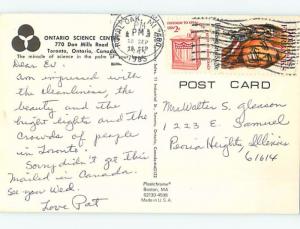 ONTARIO SCIENCE CENT
770 Don Mills Road
Toronto, Ontario, Canada
The miracle of science in the palm of
PM
SEP
1985
Dear Ev.
am impressed with
the cleanliness, the
beauty and the
bright lights and the
crowds of people
in Toronto.
Sorry didn't get this
mailed in Canada.
See you Wed.
Love Pat
Plastichrome
Boston, MA
MADE IN U.S.A.
POST CARD
Mrs Walter S. Gleason
1223 E. Samuel
Peoria Height, Illinois
61614